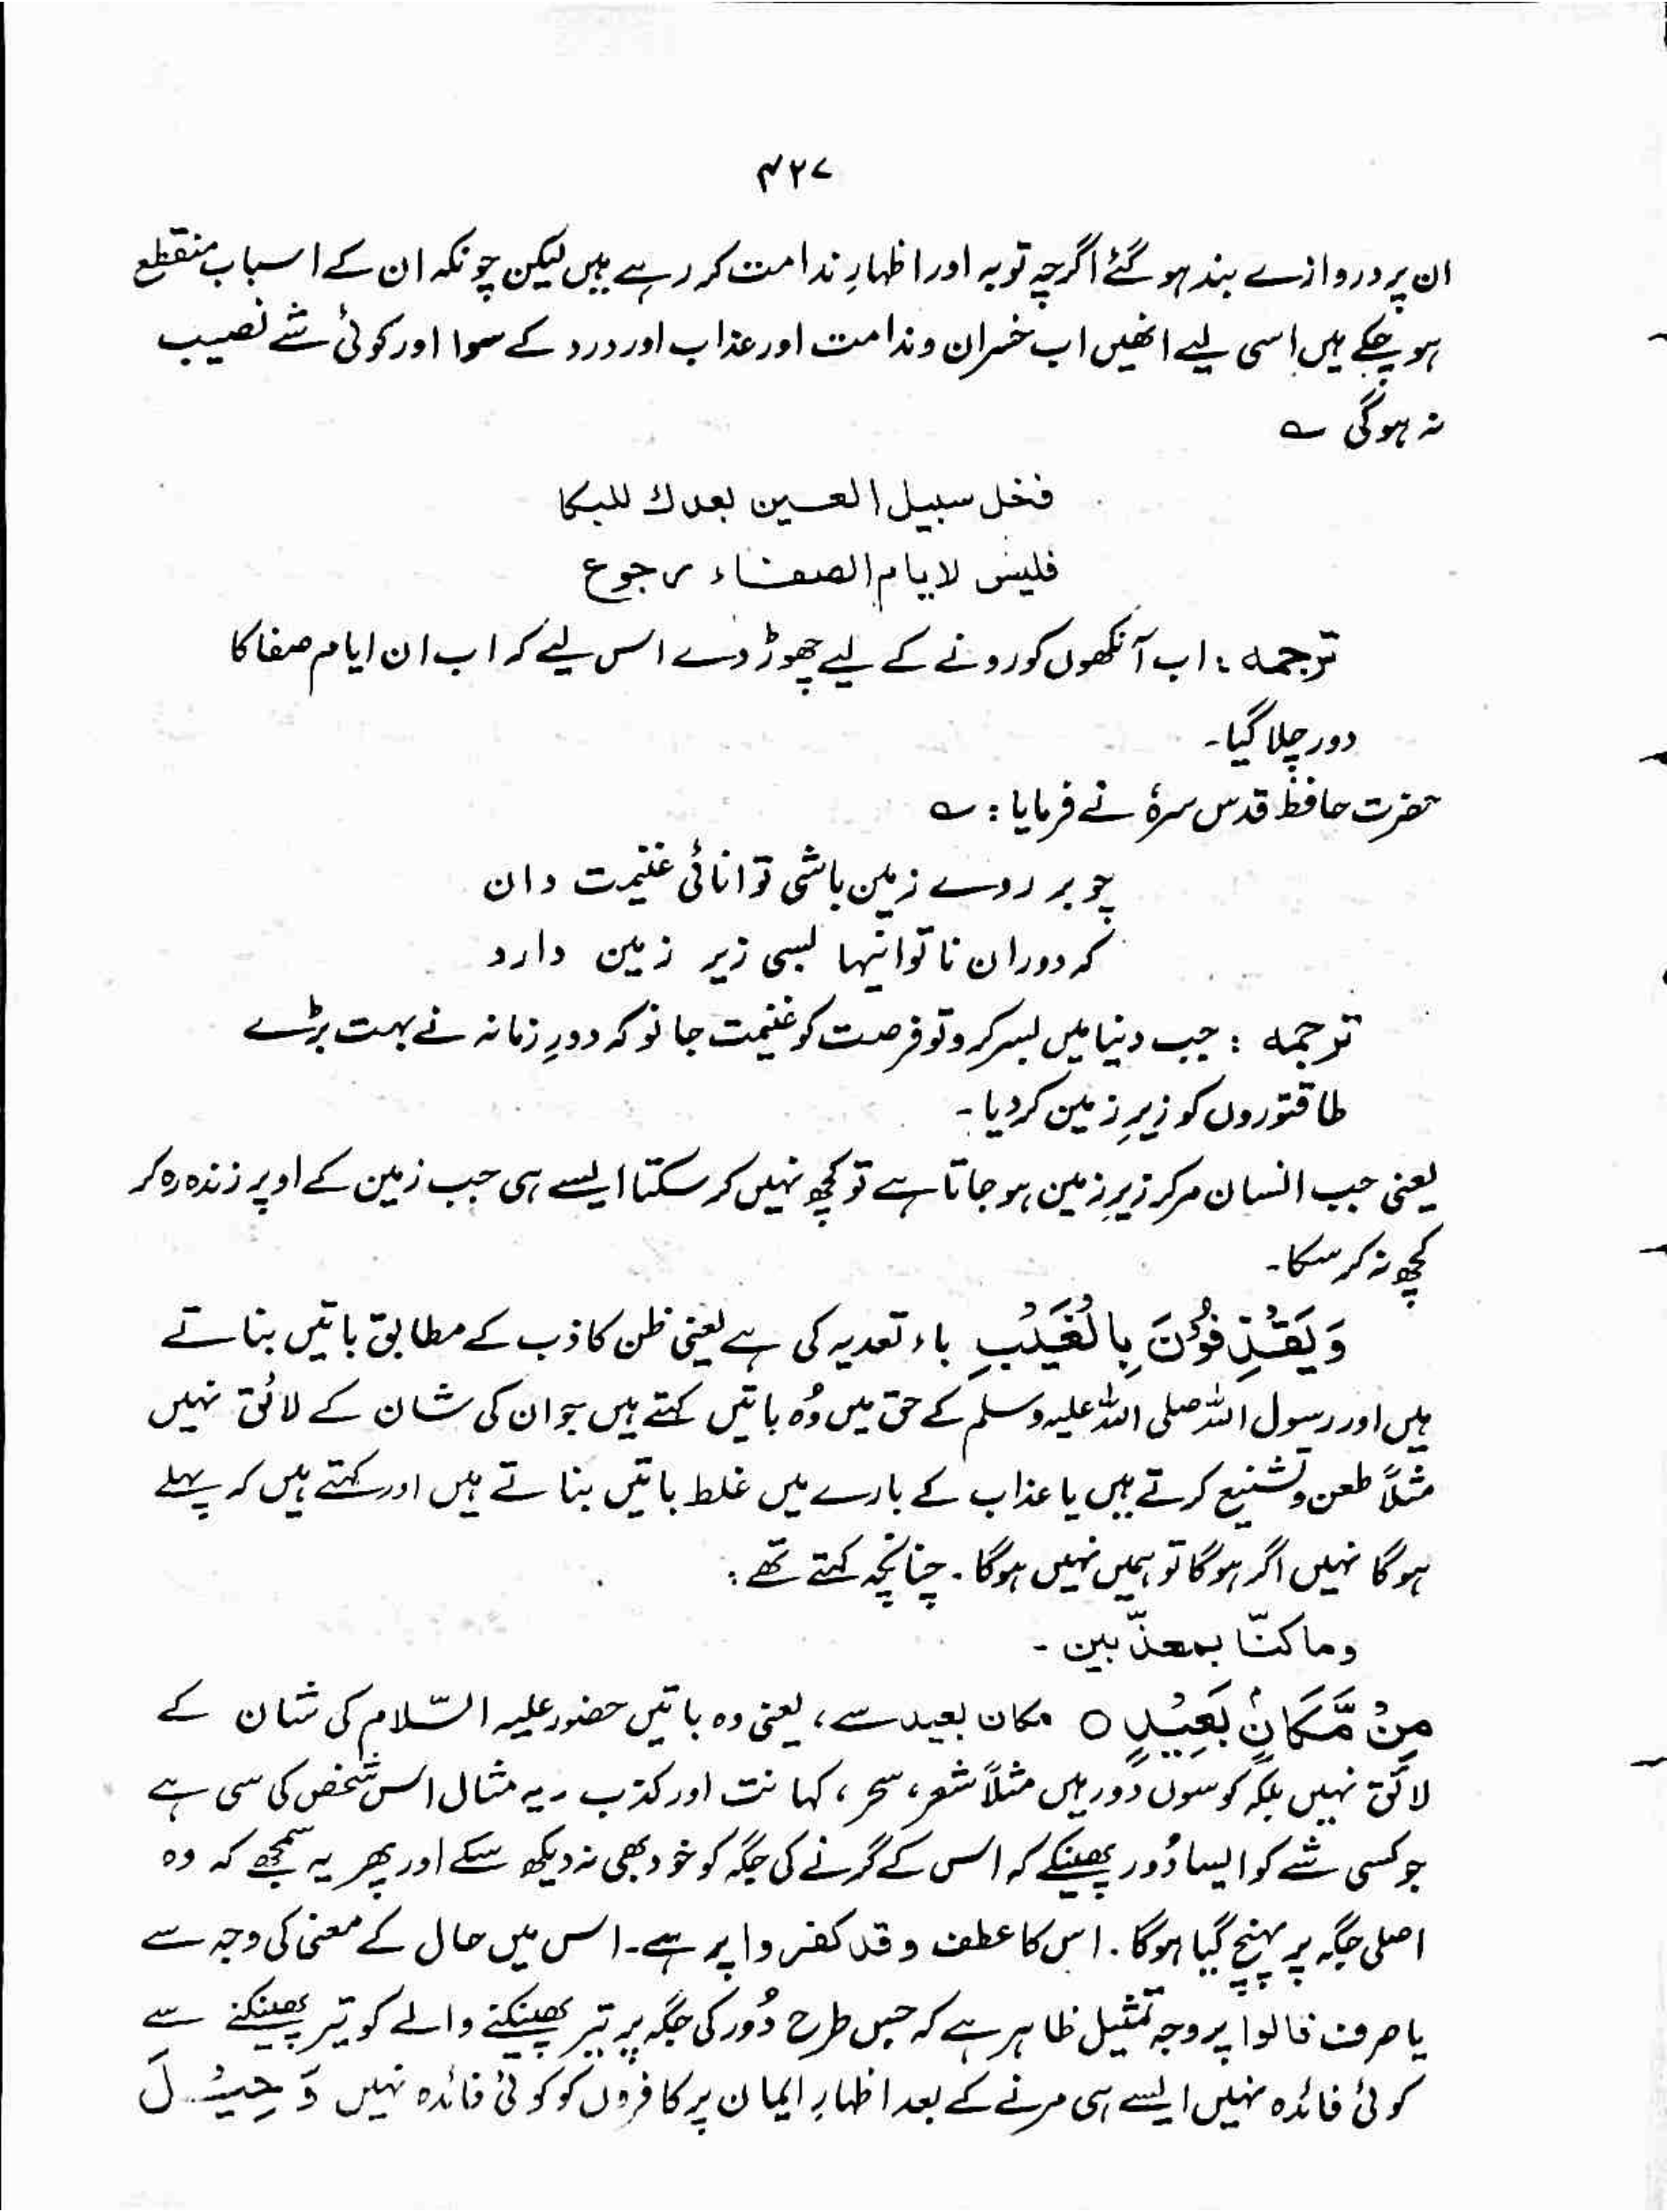 ۴۲۷
ان پر دروازے بند ہو گئے اگرچہ توبہ اور اظہارِ ندامت کر رہے ہیں لیکن چونکہ ان کے اسباب منقطع
ہو چکے ہیں اسی لیے انھیں اب خسران و ندامت اور عذاب اور درد کے سوا اور کوئی شے نصیب
نہ ہوگی ؎
فخل سبیل العین بعدك للبكا
فلیس لایام الصفاء رجوع
ترجمہ : اب آنکھوں کو رونے کے لیے چھوڑ دے اس لیے کہ اب ان ایام صفا کا
دور چلا گیا۔
حضرت حافظ قدس سرہٗ نے فرمایا : ؎
چو بر روے زمین باشی توانائی غنیمت دان
کہ دوران ناتوانیہا بسی زیر زمین دارد
ترجمہ : جب دنیا میں بسر کرو تو فرصت کو غنیمت جانو کہ دورِ زمانہ نے بہت بڑے
طاقتوروں کو زیرِ زمین کر دیا۔
یعنی جب انسان مر کر زیرِ زمین ہو جاتا ہے تو کچھ نہیں کر سکتا ایسے ہی جب زمین کے اوپر زندہ رہ کر
کچھ نہ کر سکا۔
وَیَقْذِفُوْنَ بِالْغَیْبِ باء تعدیہ کی ہے یعنی ظن کاذب کے مطابق باتیں بناتے
ہیں اور رسول اللہ صلی اللہ علیہ وسلم کے حق میں وُہ باتیں کہتے ہیں جو ان کی شان کے لائق نہیں
مثلاً طعن و تشنیع کرتے ہیں یا عذاب کے بارے میں غلط باتیں بناتے ہیں اور کہتے ہیں کہ پہلے
ہوگا نہیں اگر ہوگا تو ہمیں نہیں ہوگا۔ چنانچہ کہتے تھے :
وما کنّا بمعذّبین ۔
مِنْ مَّکَانٍۭ بَعِیْدٍ ○ مکان بعید سے ، یعنی وہ باتیں حضور علیہ السّلام کی شان کے
لائق نہیں بلکہ کوسوں دُور ہیں مثلاً شعر ، سحر ، کہانت اور کذب ۔ یہ مثال اس شخص کی سی ہے
جو کسی شے کو ایسا دُور پھینکے کہ اس کے گرنے کی جگہ کو خود بھی نہ دیکھ سکے اور پھر یہ سمجھے کہ وہ
اصلی جگہ پر پہنچ گیا ہوگا۔ اس کا عطف وقد کفروا پر ہے۔ اس میں حال کے معنی کی وجہ سے
یا صرف قالوا پر وجہ تمثیل ظاہر ہے کہ جس طرح دُور کی جگہ پر تیر پھینکنے والے کو تیر پھینکنے سے
کوئی فائدہ نہیں ایسے ہی مرنے کے بعد اظہارِ ایمان پر کافروں کو کوئی فائدہ نہیں وَ حِیْلَ